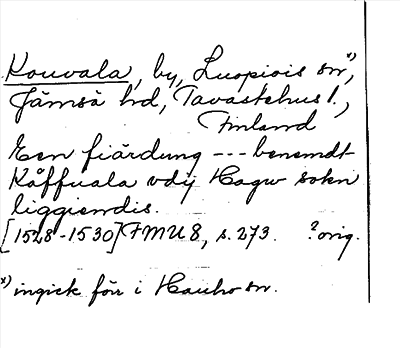 Kouvala, by, Luopiois sn x),
Jämsä hd, Tavastehus l.,
Finland
Een fiärdung --- benemdt
Kåffuala vdij Hagw sokn
liggiendis.
[1528-1530] FMU 8, s. 273. ? orig.
x) ingick förr i Hauho sn.